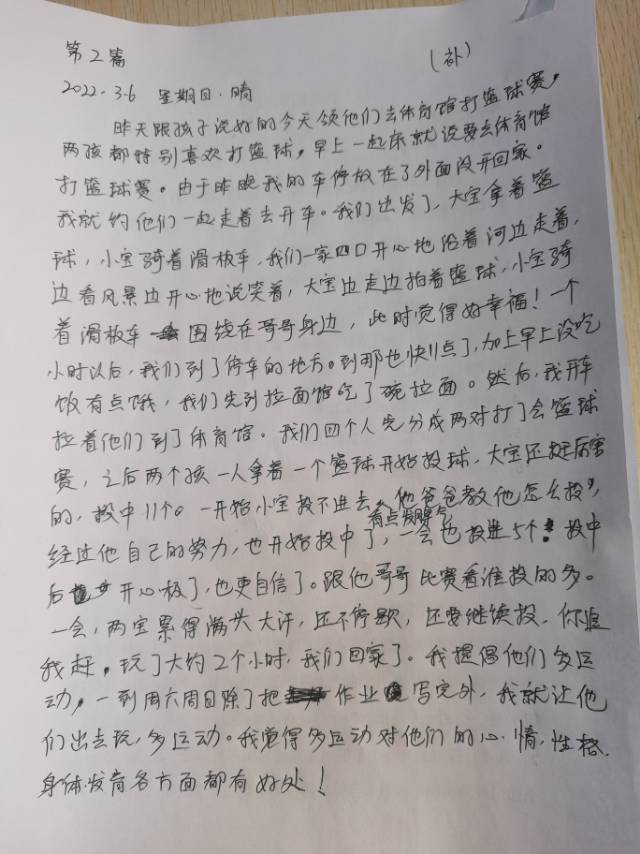 第2篇 (补)
2022.3.6 星期日·晴
昨天跟孩子说好的今天领他们去体育馆打篮球赛,
两孩都特别喜欢打篮球,早上一起床就说要去体育馆
打篮球赛。由于昨晚我的车停放在了外面没开回家。
我就约他们一起走着去开车。我们出发了,大宝拿着篮
球,小宝骑着滑板车,我们一家四口开心地沿着河边走着,
边看风景边开心地说笑着,大宝边走边拍着篮球,小宝骑
着滑板车围绕在哥哥身边,此时觉得好幸福!一个
小时以后,我们到了停车的地方。到那也快11点了,加上早上没吃
饭有点饿,我们先到拉面馆吃了碗拉面。然后,我开车
拉着他们到了体育馆。我们四个人先分成两对打了会篮球
赛,之后两个孩一人拿着一个篮球开始投球,大宝还挺厉害
的,投中11个。一开始小宝投不进去,有点发脾气他爸爸教他怎么投,
经过他自己的努力,也开始投中了,一会也投进5个!投中
后开心极了,也更自信了。跟他哥哥比赛看谁投的多。
一会,两宝累得满头大汗,还不停歇,还要继续投,你追
我赶,玩了大约2个小时,我们回家了。我提倡他们多运
动,一到周六周日除了把作业写完外,我就让他
们出去玩,多运动。我觉得多运动对他们的心情,性格,
身体发育各方面都有好处!